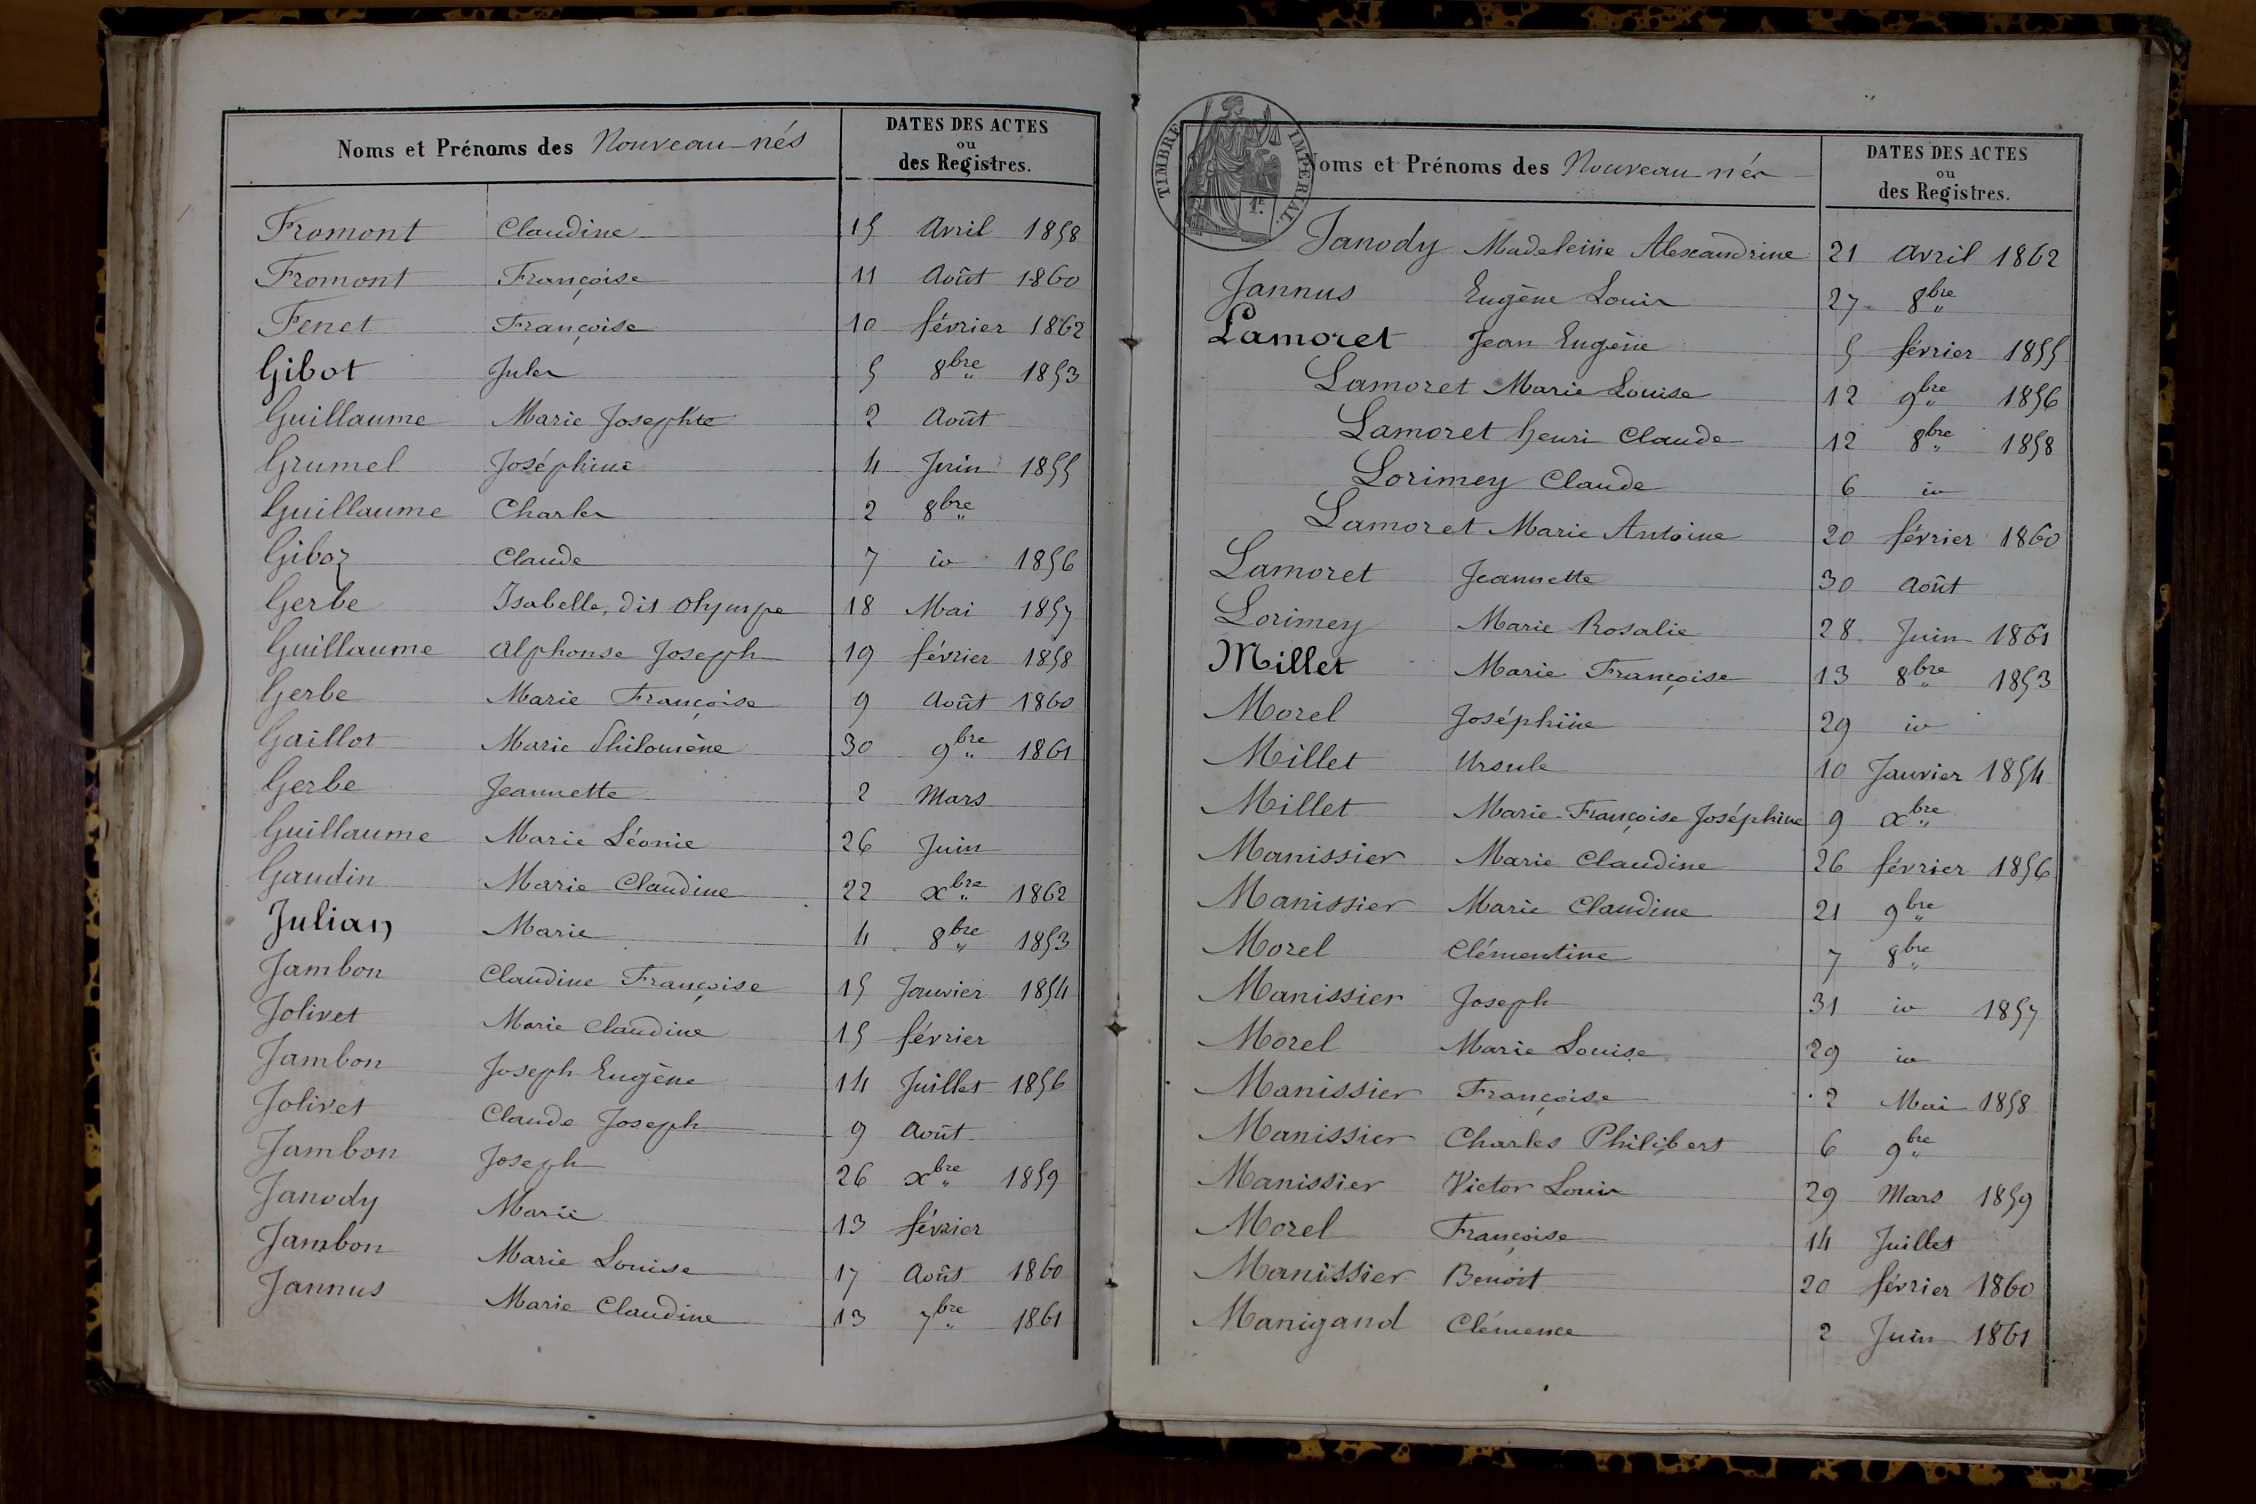 Noms et Prénoms des Nouveau-nés
DATES DES ACTES
ou
des Registres.
Fromont Claudine 15 Avril 1858
Fromont Françoise 11 Août 1860
Fenet Françoise 10 février 1862
Gibot Jules 5 8bre 1853
Guillaume Marie Joseph'te 2 Août
Grumel Joséphine 4 Juin 1855
Guillaume Charles 2 8bre
Giboz Claude 7 id 1856
Gerbe Isabelle, dit Olympe 18 Mai 1857
Guillaume Alphonse Joseph 19 février 1858
Gerbe Marie Françoise 9 Août 1860
Gaillot Marie Philomène 30 9bre 1861
Gerbe Jeannette 2 Mars
Guillaume Marie Léonie 26 Juin
Gaudin Marie Claudine 22 xbre 1862
Julian Marie 4 8bre 1853
Jambon Claudine Françoise 15 Janvier 1854
Jolivet Marie Claudine 15 février
Jambon Joseph Eugène 14 Juillet 1856
Jolivet Claude Joseph 9 Août
Jambon Joseph 26 xbre 1859
Janody Marie 13 février
Jambon Marie Louise 17 Août 1860
Jannus Marie Claudine 13 7bre 1861
TIMBRE IMPÉRIAL
Noms et Prénoms des Nouveau-nés
DATES DES ACTES
ou
des Registres.
Janody Madeleine Alexandrine 21 Avril 1862
Jannus Eugène Louis 27 8bre
Lamoret Jean Eugène 5 février 1855
Lamoret Marie Louise 12 9bre 1856
Lamoret henri Claude 12 8bre 1858
Lorimey Claude 6 id
Lamoret Marie Antoine 20 février 1860
Lamoret Jeannette 30 Août
Lorimey Marie Rosalie 28 Juin 1861
Millet Marie Françoise 13 8bre 1853
Morel Joséphine 29 id
Millet Ursule 10 Janvier 1854
Millet Marie-Françoise Joséphine 9 xbre
Manissier Marie Claudine 26 février 1856
Manissier Marie Claudine 21 9bre
Morel Clémentine 7 8bre
Manissier Joseph 31 id 1857
Morel Marie Louise 29 id
Manissier Françoise 2 Mai 1858
Manissier Charles Philibert 6 9bre
Manissier Victor Louis 29 Mars 1859
Morel Françoise 14 Juillet
Manissier Benoit 20 février 1860
Manigand Clémence 2 Juin 1861